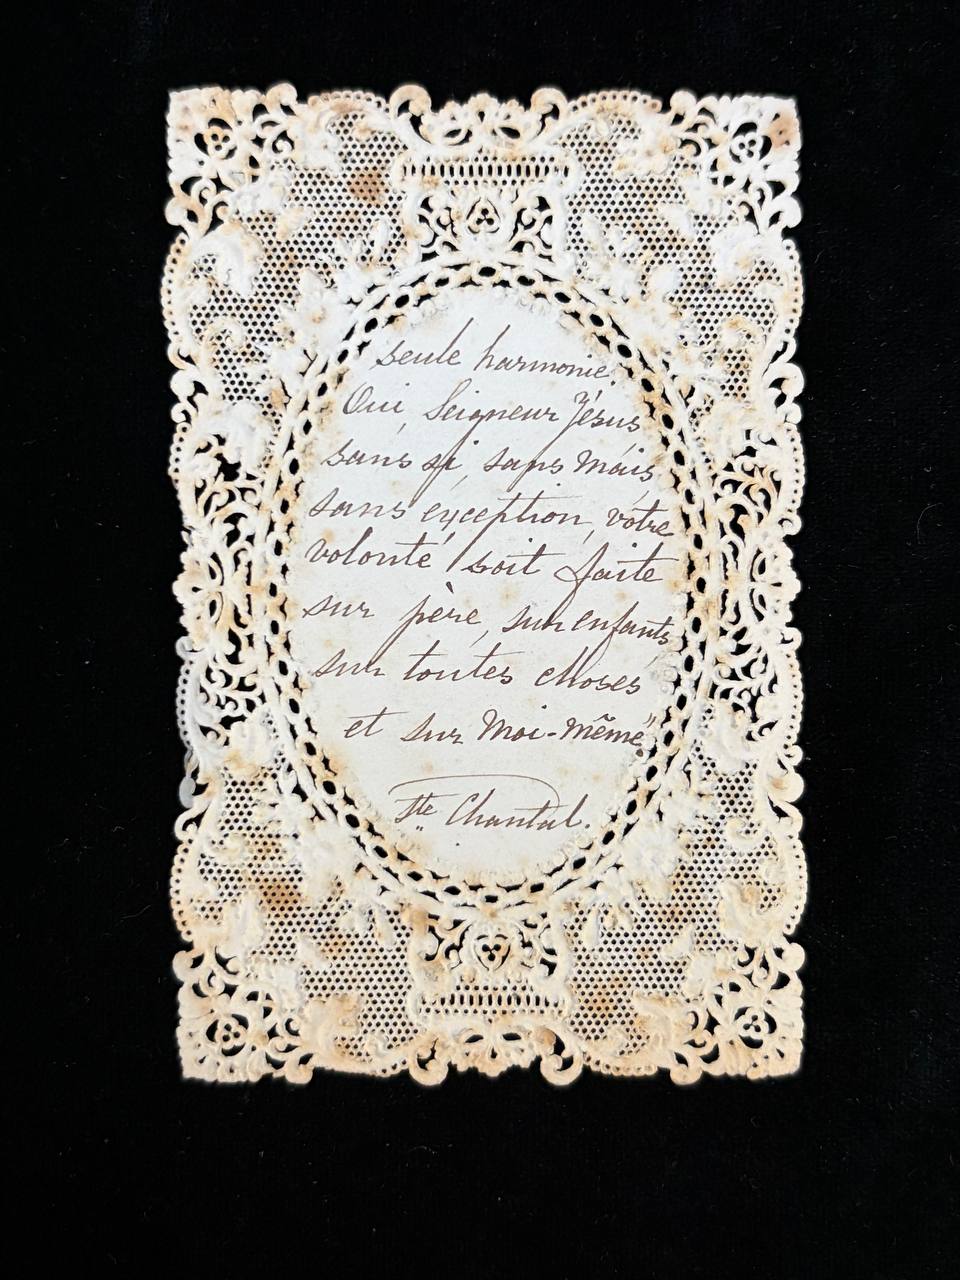 seule harmonie.
Oui, Seigneur Jésus
sans si, sans mais
sans exception, votre
volonté soit faite
sur père, sur enfants,
sur toutes choses
et sur Moi-même."
Ste Chantal.